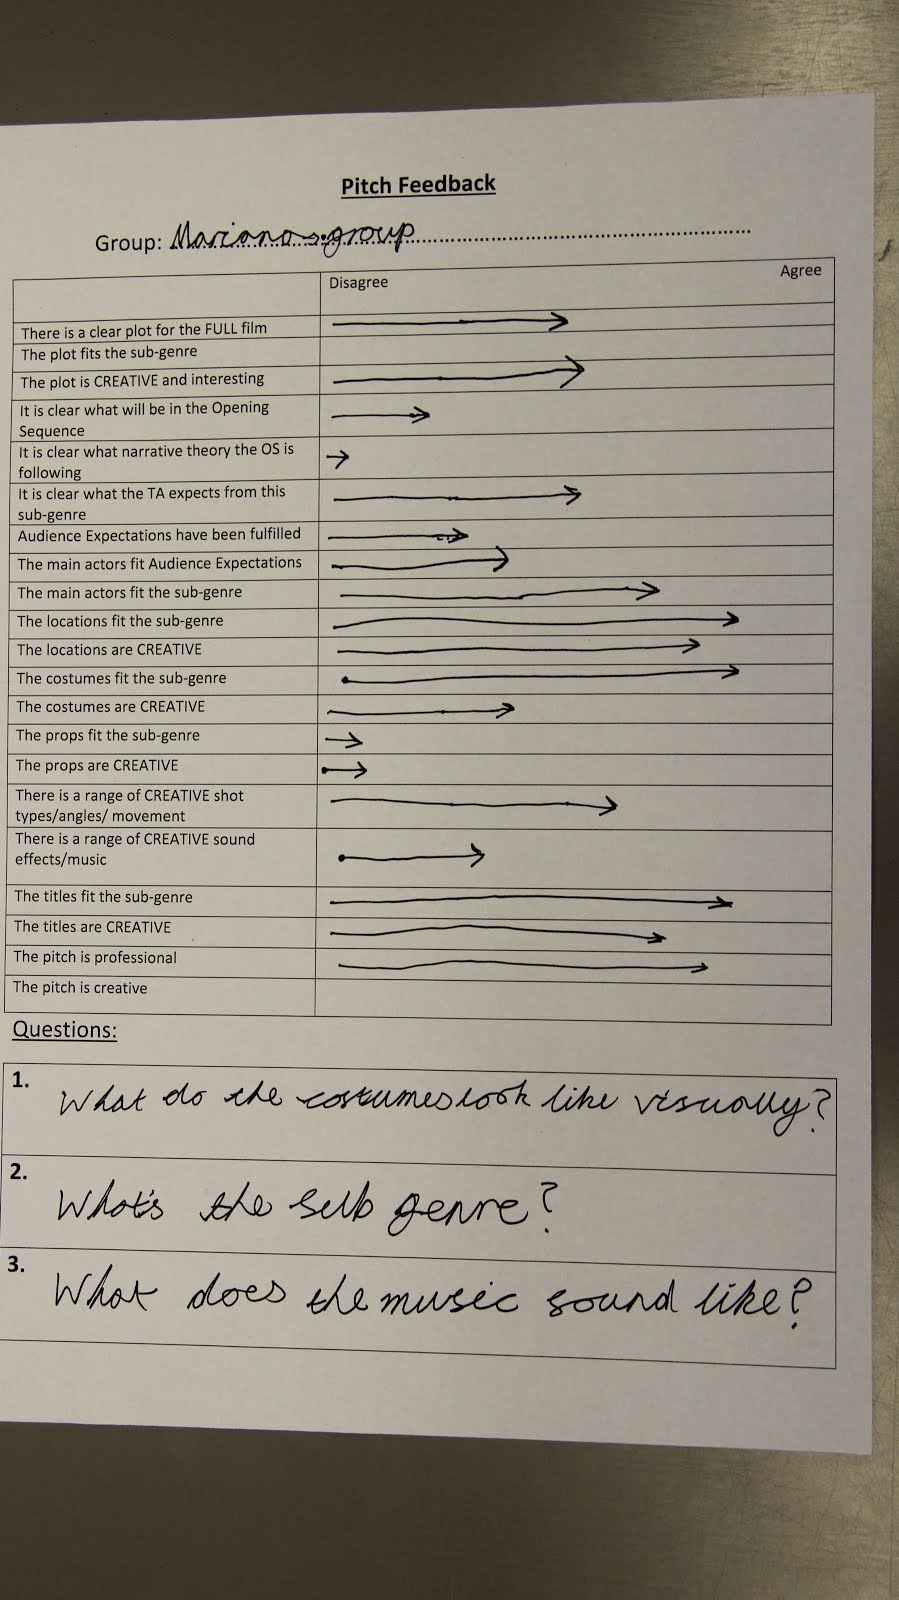 Pitch Feedback
Group: Mariana's group
Disagree Agree
There is a clear plot for the FULL film
The plot fits the sub-genre
The plot is CREATIVE and interesting
It is clear what will be in the Opening
Sequence
It is clear what narrative theory the OS is
following
It is clear what the TA expects from this
sub-genre
Audience Expectations have been fulfilled
The main actors fit Audience Expectations
The main actors fit the sub-genre
The locations fit the sub-genre
The locations are CREATIVE
The costumes fit the sub-genre
The costumes are CREATIVE
The props fit the sub-genre
The props are CREATIVE
There is a range of CREATIVE shot
types/angles/ movement
There is a range of CREATIVE sound
effects/music
The titles fit the sub-genre
The titles are CREATIVE
The pitch is professional
The pitch is creative
Questions:
1. What do the costumes look like visually?
2. What's the sub genre?
3. What does the music sound like?